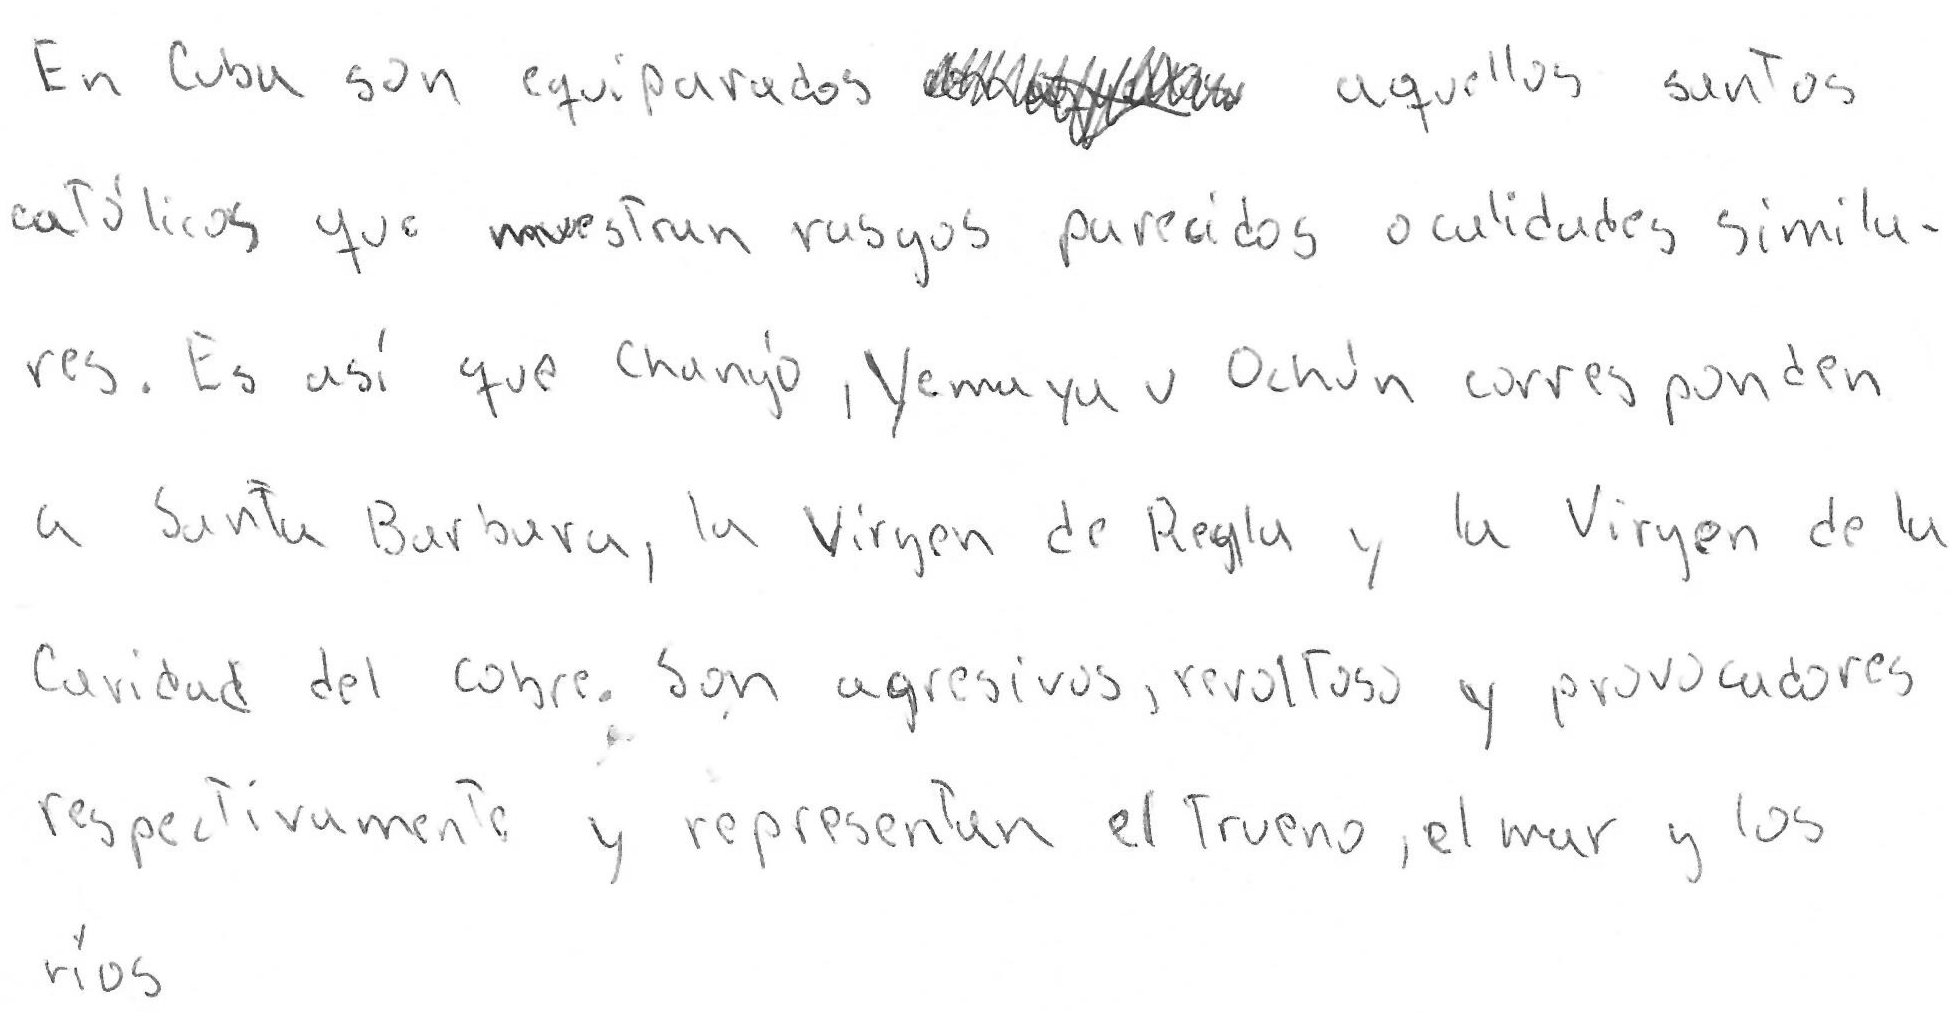 En Cuba son equiparados aquellos santos
católicos que muestran rasgos parecidos o calidades simila-
res. Es así que Changó, Yemaya u Ochún corresponden
a Santa Barbara, la Virgen de Regla y la Virgen de la
Caridad del cobre. Son agresivos, revoltoso y provocadores
respectivamente y representan el trueno, el mar y los
ríos